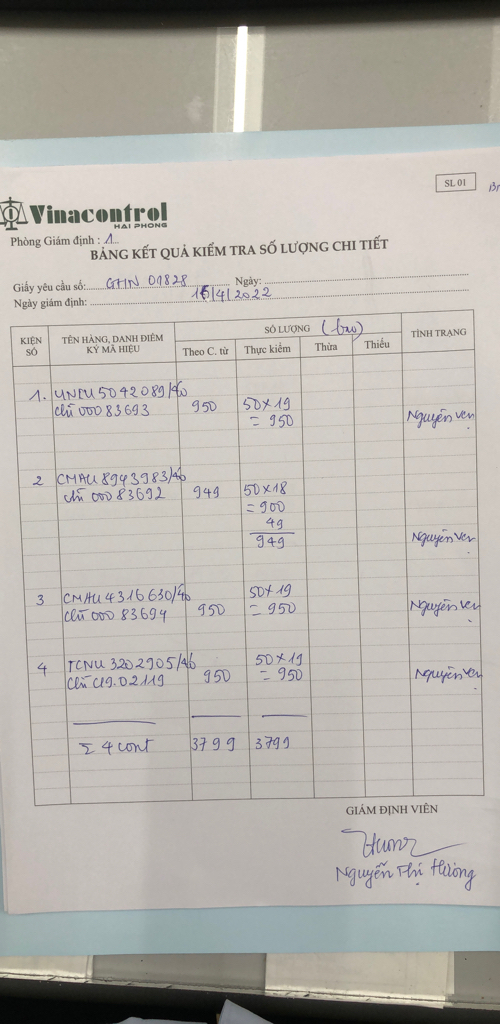 SL 01
Vinacontrol
HAI PHONG
Phòng Giám định : 1
BẢNG KẾT QUẢ KIỂM TRA SỐ LƯỢNG CHI TIẾT
Giấy yêu cầu số: GHN 01828 Ngày:
Ngày giám định: 15/4/2022
KIỆN SỐ TÊN HÀNG, DANH ĐIỂM KÝ MÃ HIỆU SỐ LƯỢNG (bao) TÌNH TRẠNG
Theo C. từ Thực kiểm Thừa Thiếu
1. 5042089/40 950 50×19
chì 00083693 = 950 Nguyên vẹn
2 CMAU 8943983/40 949 50×18
chì 00083692 = 900
49
949 Nguyên vẹn
3 CMAU 4316630/40 50×19
chì 00083694 950 = 950 Nguyên vẹn
4 TCNU 3202905/40 50×19
chì C19.02119 950 = 950 Nguyên vẹn
Σ 4 cont 3799 3799
GIÁM ĐỊNH VIÊN
Nguyễn Thị Hường